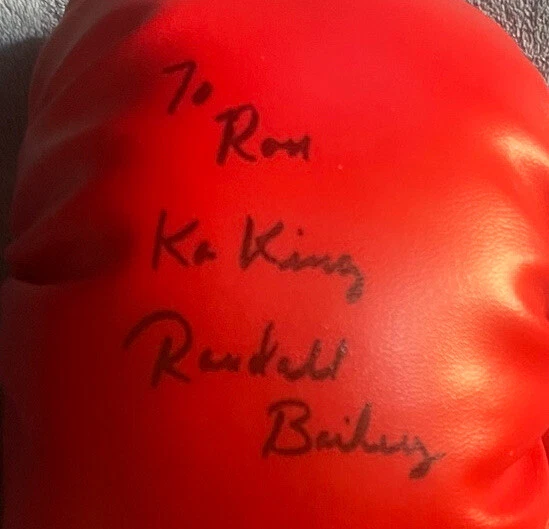 To
Ron
Ko King
Randall
Bailey